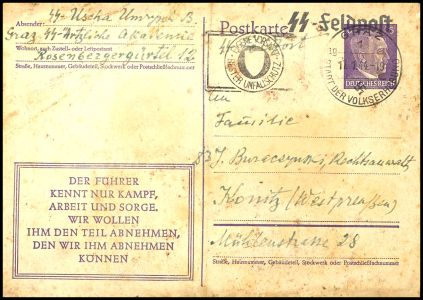 Absender: SS-Uscha Umrysz B.
Graz SS-Ärztliche Akademie
Wohnort, auch Zustell- oder Leitpostamt
Rosenbergergürtel 12
Straße, Hausnummer, Gebäudeteil, Stockwerk oder Postschließfachnummer
Postkarte SS-Feldpost
GRAZ
STADT DER VOLKSERHEBUNG
DEUTSCHES REICH
An
Familie
J. Bureczynski, Rechtsanwalt
Konitz (Westpreußen)
Mühlenstrasse 28
Straße, Hausnummer, Gebäudeteil, Stockwerk oder Postschließfachnummer
DER FÜHRER
KENNT NUR KAMPF,
ARBEIT UND SORGE.
WIR WOLLEN
IHM DEN TEIL ABNEHMEN,
DEN WIR IHM ABNEHMEN
KÖNNEN